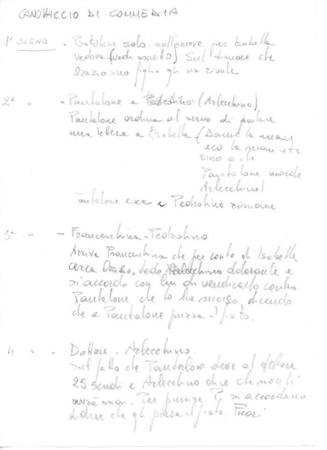 CANOVACCIO DI COMMEDIA
1ª SCENA - Pantalone solo. sull'amore per Isabella
vedova (vedi amato) Sul timore che
Orazio suo figlio gli sia rivale
2ª - Pantalone e Pedrolino (Arlecchino)
Pantalone ordina al servo di portare
una lettera a Isabella (Dame la man
eco la man etc
sino a che
Pantalone morde
Arlecchino)
Pantalone esce e Pedrolino rimane
3ª - Franceschina - Pedrolino.
Arriva Franceschina che per conto di Isabella
cerca Orazio, vede Arlecchino dolorante e
si accorda con lui di vendicarlo contro
Pantalone, che lo ha morso, dicendo
che a Pantalone puzza il fiato.
4 - Dottore - Arlecchino
Sul fatto che Pantalone deve al dottore
25 scudi e Arlecchino dice che non li
avrà mai. Per punire P. si accordano
a dire che gli puzza il fiato. Fuori